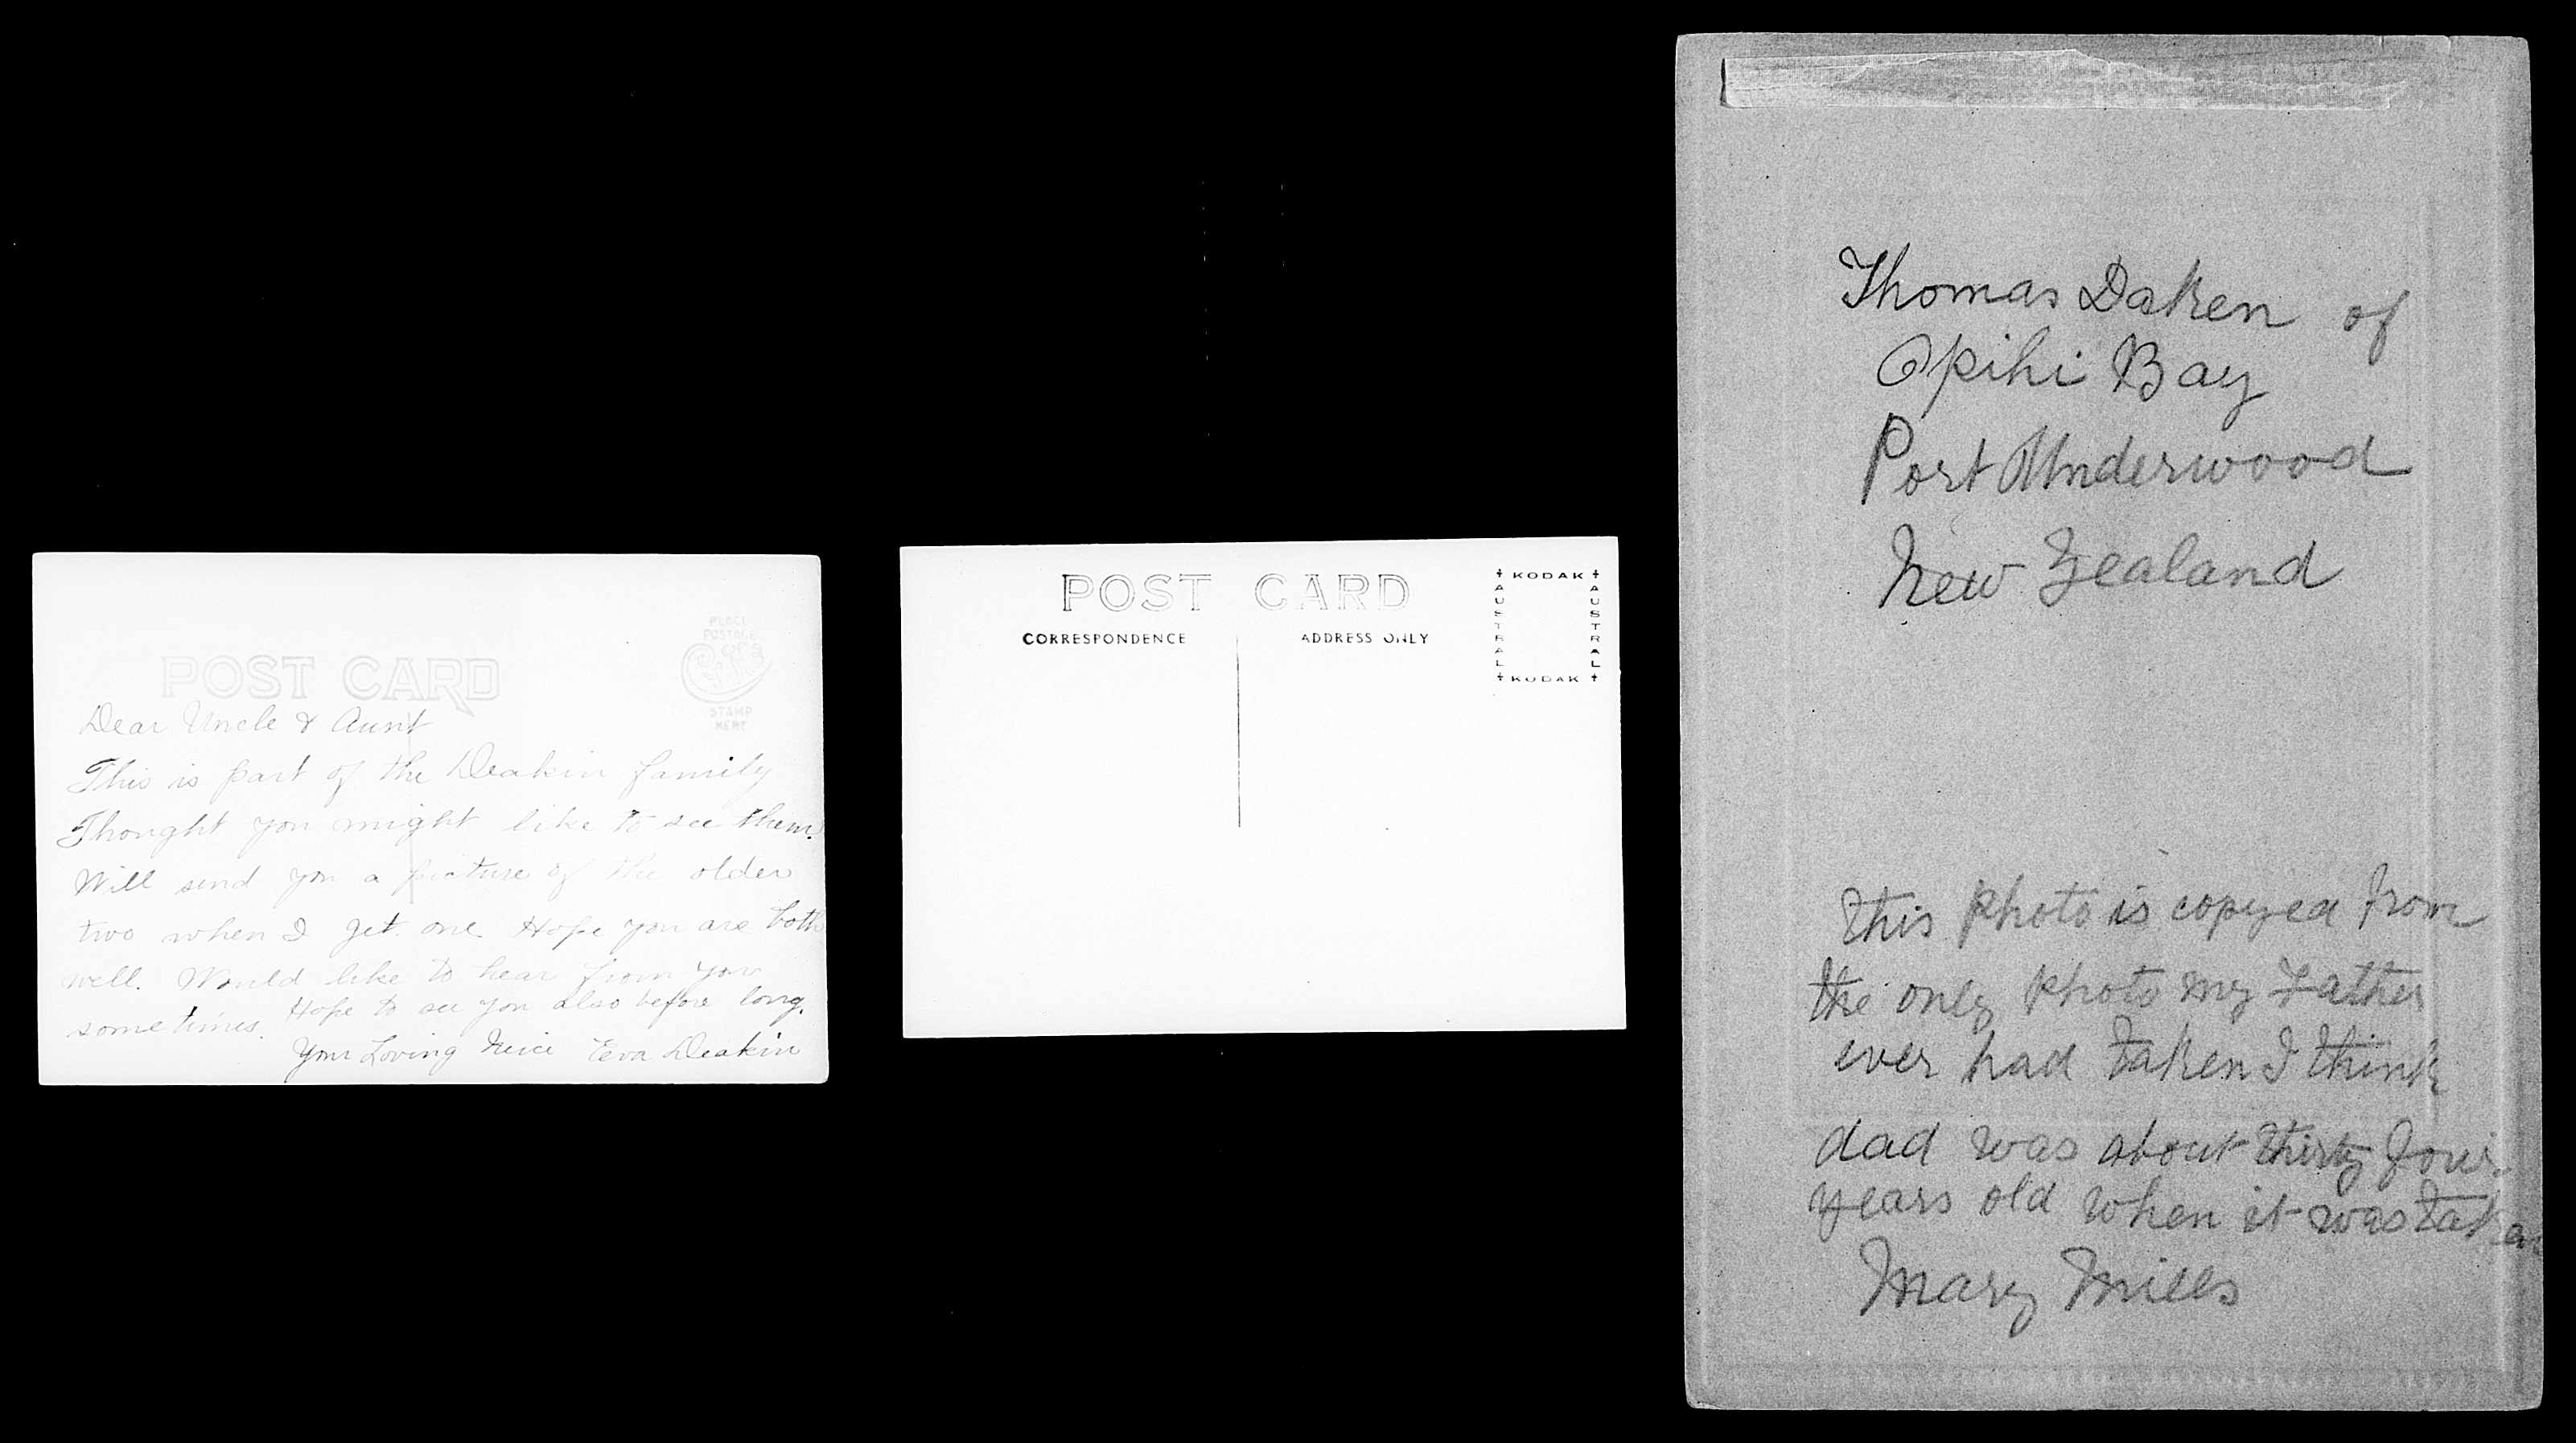 PLACE
POSTAGE
STAMP
HERE
POST CARD
Dear Uncle & Aunt
This is part of the Deakin family
Thought you might like to see them.
Will send you a picture of the older
two when I get one Hope you are both
well. Would like to hear from you
sometimes. Hope to see you also before long.
Your Loving Neice Eva Deakin
POST CARD
CORRESPONDENCE
ADDRESS ONLY
KODAK
AUSTRAL
AUSTRAL
KODAK
Thomas Daken of
Opihi Bay
Port Underwood
New Zealand
this photo is copyed from
the only photo my Father
ever had taken I think
dad was about thirty four
years old when it was taken
Mary Mills